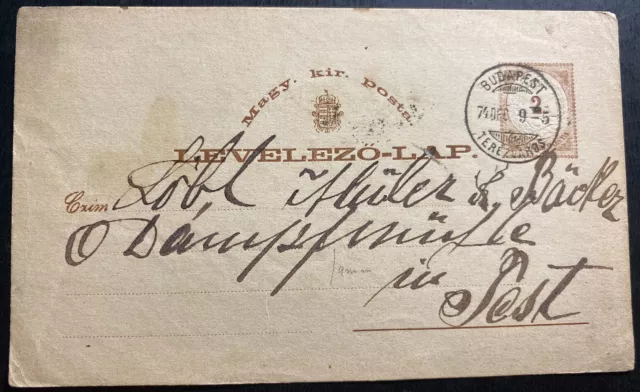 Magy. kir. Posta.
LEVELEZŐ-LAP.
BUDAPEST
74 DEC 9-5
TERÉZVÁROS
2
Czim
Löbl Müller & Bäcker
Dampfmühle
in
Pest